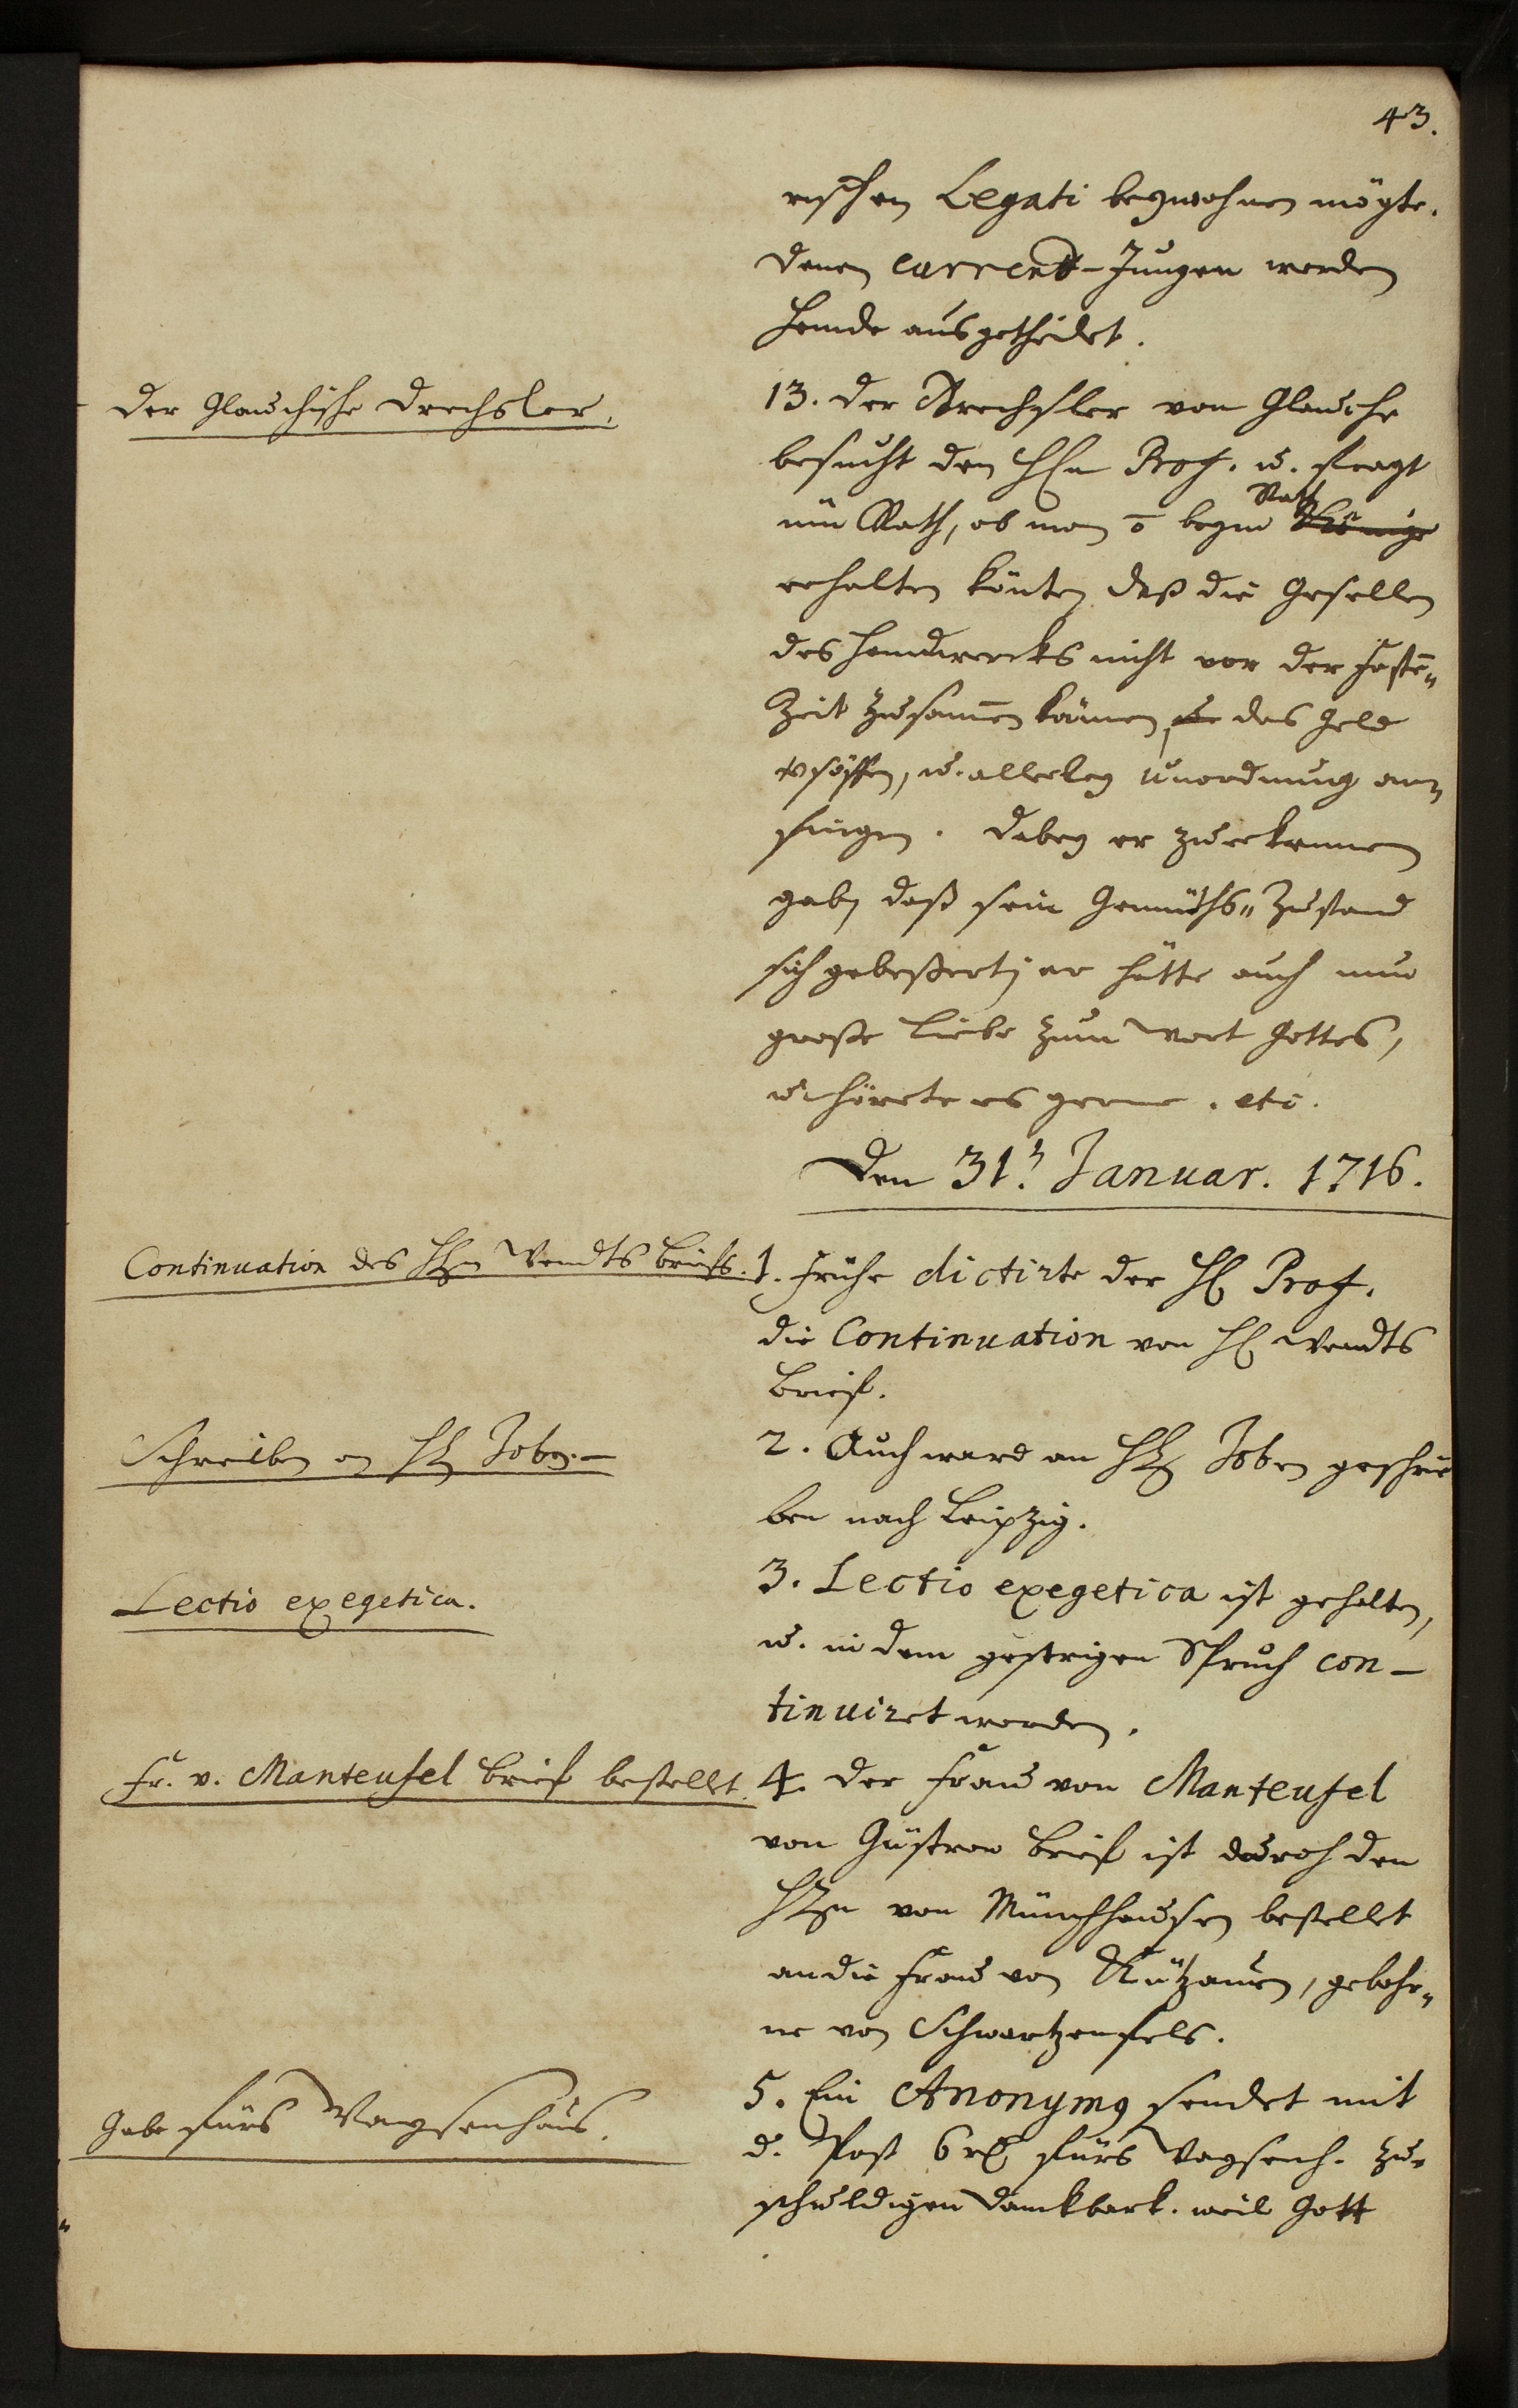 43.
rischen Legati beywohnen mögte.
Denen current-Jungen werden
Hemde ausgetheilet.
Der Glauchische Drechsler.
13. Der Drechsler von Glauche
besucht den HEn Prof. u. fragt
um Rath, ob man ō beym Rath
erhalten könte, daß die Gesellen
des Handwercks nicht vor der Fastē„
Zeit zusam̄en kämen, das Geld
versöffen, u. allerley Unordnung an„
fingen. Dabey er zu erkennen
gab, daß sein Gemüths„Zustand
sich gebeßert; er hätte auch nun
große Liebe zum Wort Gottes,
u. hörete es gerne. etc.
Den 31. Januar. 1716.
Continuation des HEn Wendts briefs.
1. Frühe dictirte der HE Prof.
die Continuation von HE Wendts
Brief.
Schreiben an HEn Joben.
2. Auch ward an HEn Joben geschrie
ben nach Leipzig.
Lectio exegetica.
3. Lectio exegetica ist gehalten,
u. in dem gestrigen Spruch con-
tinuiret worden.
Fr. v. Manteufel brief bestellt.
4. Der Frau von Manteufel
von Güstrow brief ist durch den
HEn von Münchhausen bestellet
an die Frau von Lützauen, gebohr„
ne von Schwartzenfels.
Gabe fürs Waysenhaus.
5. Ein Anonymus sendet mit
d. Post 6 rl fürs Waysenh. zur
schuldigen Danckbark. weil Gott